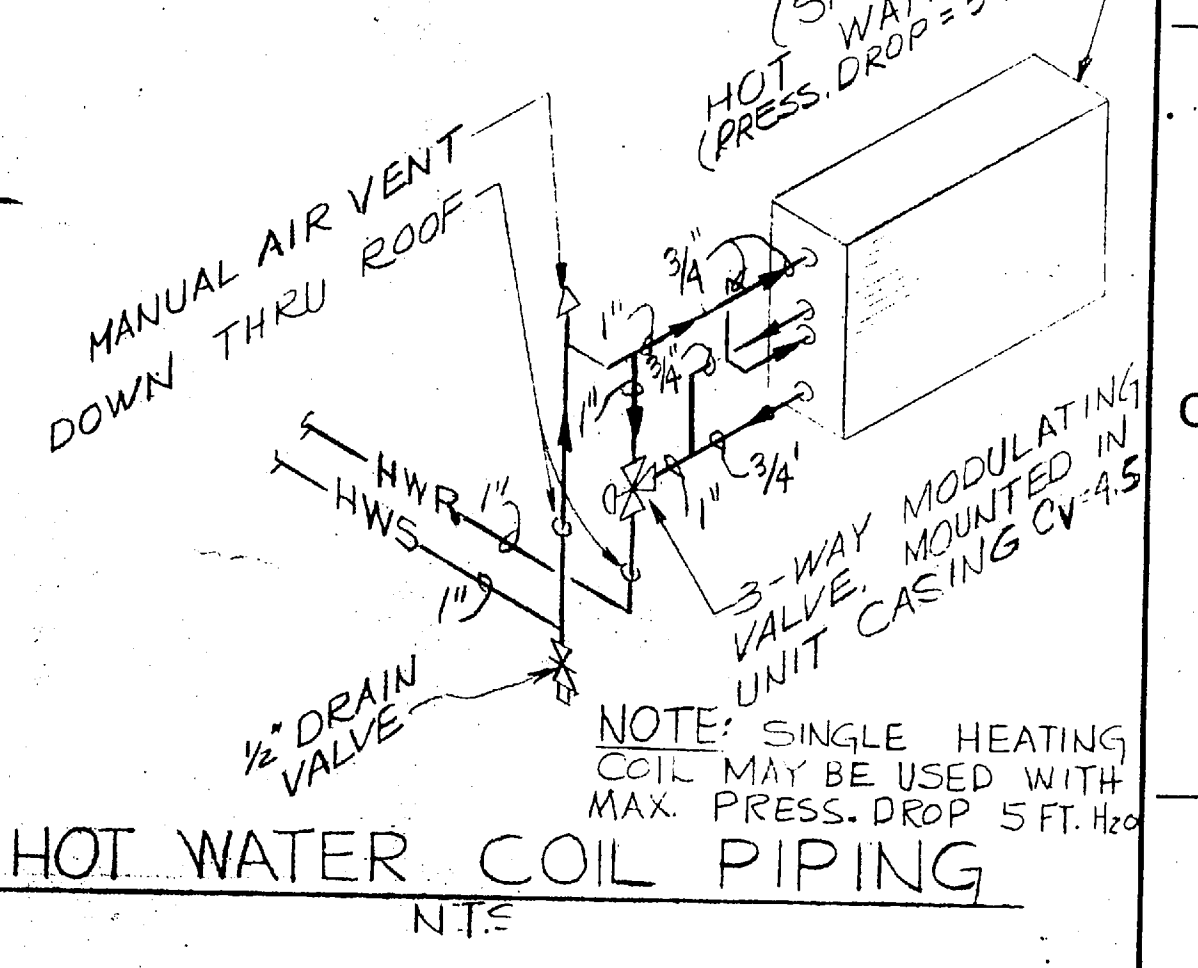 HOT
(PRESS. DROP = 5
MANUAL AIR VENT
DOWN THRU ROOF
3/4"
1"
3/4"
1"
3/4"
1"
HWR 1"
HWS
1"
3-WAY MODULATING
VALVE. MOUNTED IN
UNIT CASING CV=4.5
1/2" DRAIN
VALVE
NOTE: SINGLE HEATING
COIL MAY BE USED WITH
MAX. PRESS. DROP 5 FT. H2O
HOT WATER COIL PIPING
N.T.S